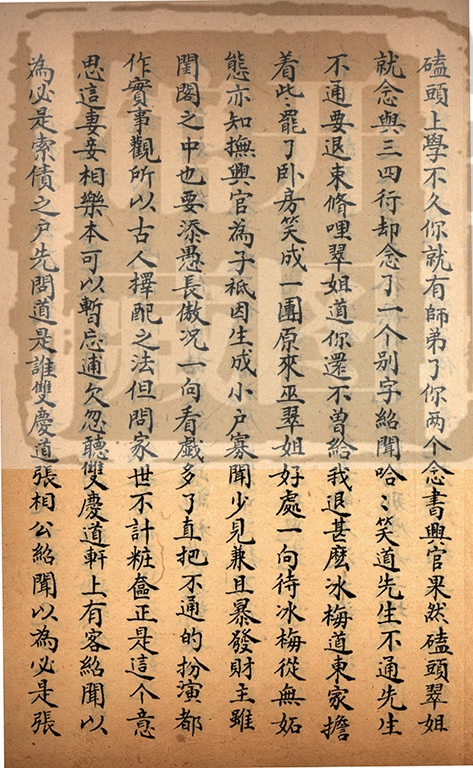 磕頭上學不久你就有師弟了你两个念書興官果然磕頭翠姐
就念與三四行却念了一个别字紹聞哈〻笑道先生不通先生
不通要退束脩哩翠姐道你還不曾給我退甚麽冰梅道東家擔
着此〻罷了卧房笑成一團原來巫翠姐好處一向待冰梅從無妬
態亦知撫興官為子祗因生成小户寡聞少見兼且暴發財主雖
閨閣之中也要添愚長傲况一向看戲多了直把不通的扮演都
作實事觀所以古人擇配之法但問家世不計粧奩正是這个意
思這妻妾相樂本可以暫忘逋欠忽聽雙慶道軒上有客紹聞以
為必是索債之户先問道是誰雙慶道張相公紹聞以為必是張